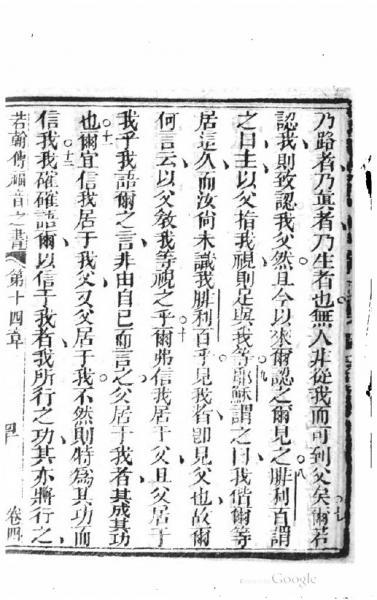 乃路者乃眞者乃生者也無人非從我而可到父矣爾若
七
認我則致認我父然且今以來爾認之爾見之腓利百謂
八
之曰主以父指我視則足與我等耶穌謂之曰我偕爾等
九
居這久而汝尚未識我腓利百乎見我者卽見父也故爾
何言云以父敎我等視之乎爾弗信我居于父且父居于
十
我乎我語爾之言非由自已而言之父居于我者其成其功
十一
也爾宜信我居于我父又父居于我不然則特爲其功而
十二
信我我確確語爾以信于我者我所行之功其亦將行之
若翰傳福音之書 第十四章 卷四
Google